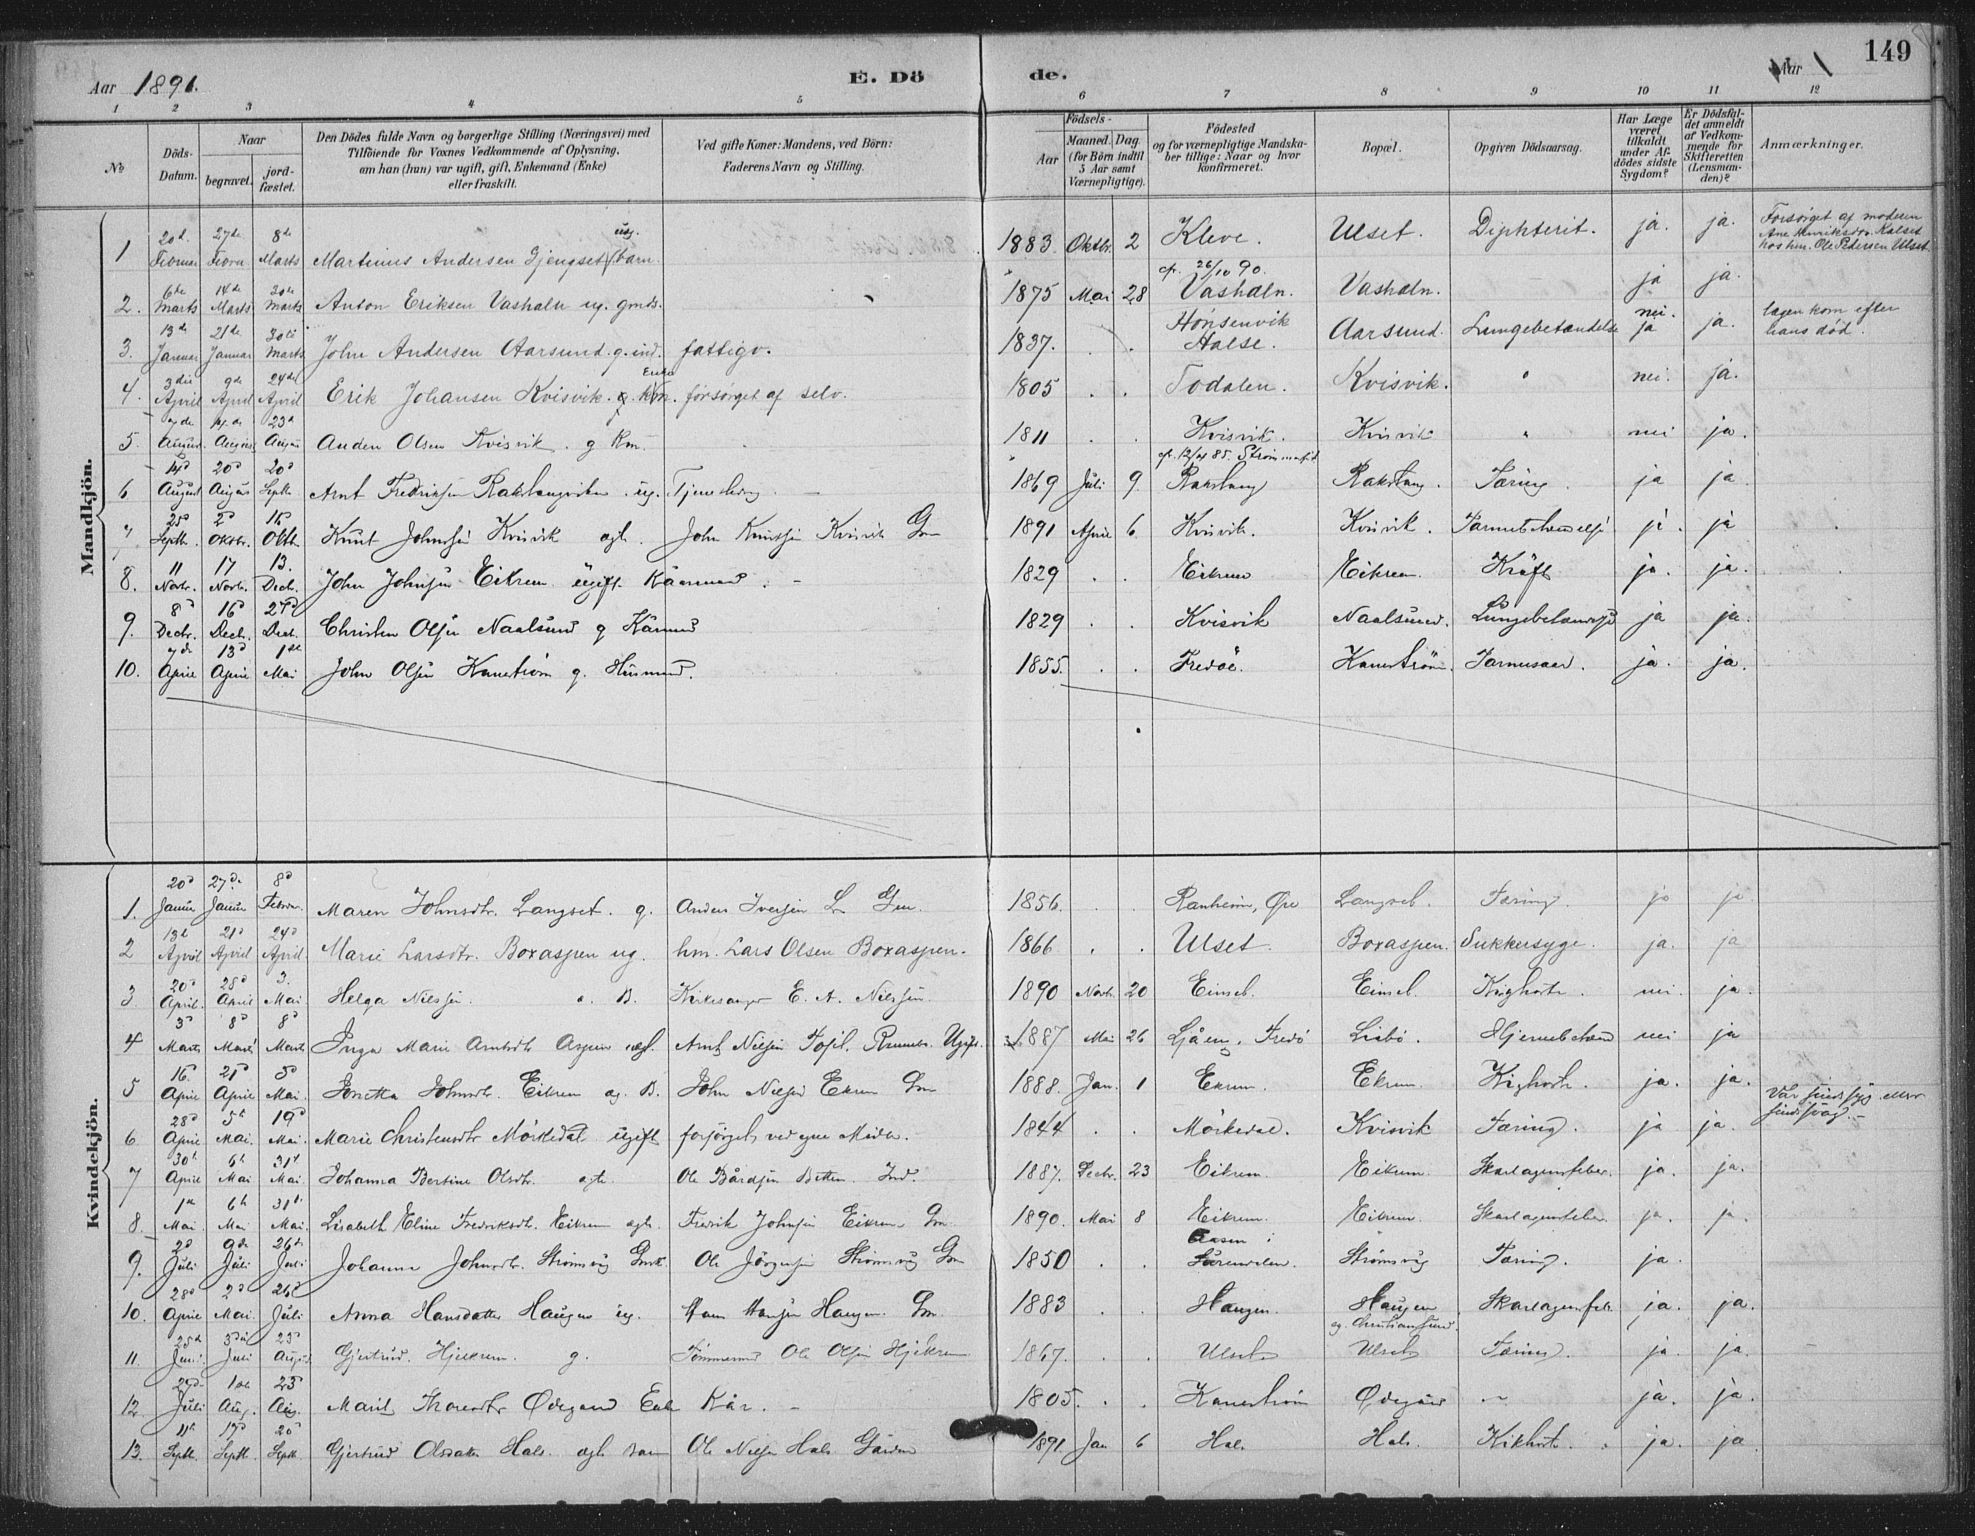 149
Aar 1891. E. Dö de. Aar
1 2 3 4 5 6 7 8 9 10 11 12
№ Döds-Datum. Naar begravet. jord-fæstet. Den Dödes fulde Navn og borgerlige Stilling (Næringsvei) med Tilföiende for Voxnes Vedkommende af Oplysning, om han (hun) var ugift, gift, Enkemand (Enke) eller fraskilt. Ved gifte Koner: Mandens, ved Börn: Faderens Navn og Stilling. Födsels- Aar Maaned. Dag. (for Börn indtil 5 Aar samt Værnepligtige). Födested og for værnepligtige Mandskaber tillige: Naar og hvor konfirmeret. Bopæl. Opgiven Dödsaarsag. Har Læge været tilkaldt under Afdödes sidste Sygdom? Er Dödsfaldet anmeldt af Vedkommende for Skifteretten (Lensmanden)? Anmærkninger.
Mandkjön.
1 20d. Februar 27de Febru 8de Marts Martinus Andersen Gjengset uæg. barn. 1883 Oktbr. 2 Kleve. Ulset. Diphterit. ja. ja. Forsörget af moderen Ane Henriksdr. Kalset hos hm. Ole Pedersen Ulset
2. 6te Marts 14de Marts 30te Marts Anton Eriksen Vashaln ug. gmds. 1875 Mai 28 cf. 26/10 90. Vashaln. Vashaln. ja ja.
3. 13de Januar 21de Januar 30te Marts John Andersen Aarsund. g. ind. fattigv. 1837. Hönsenvik Halse. Aarsund. Lungebetændelse nei. ja ja. lægen kom efter hans död.
4. 3die April 9de April 24de April Erik Johansen Kvisvik. Enke forsörget af selv. 1805 Todalen. Kvisvik. " nei. ja.
5. 7de August 14de August 23d August Anders Olsen Kvisvik. g Km. 1811 Kvisvik. Kvisvik " nei ja.
6 14d August 20d August 20d Septb. Arnt Fredriksen Rakstangviken. ug. Tjenestedreng 1869 Juli 9. cf. 12/4 85. Rakstang Rakstang. Tæring. ja ja.
7 25d Septb. 2d Oktbr. Oktb. Knut Johnsen Kvisvik ægte. John Knutsen Kvisvik Gm 1891 April 6. Kvisvik. Kvisvik. ja. ja
8. 11 Novbr. 17 Novbr. 13. Decbr. John Johnsen Eikrem ugift. Kaarmand. 1829 Eikrem Eikrem. Kræft ja. ja.
9. 8d Decbr. 16d Decb. 27d Decb. Christen Olsen Naalsund g Kårmand 1829 Kvisvik Naalsund. Lungebetændelse ja ja.
10. 7de April 13d April 1ste Mai John Olsen Kanestrøm g. Husmand. 1855. Fredöe. Kanestrøm. Tarmesaar. ja. ja.
Kvindekjön.
1. 20d Januar 27de Januar 8d Februar. Maren Johnsdtr. Langset. g. Anders Iversen L Gm. 1856. Ranheim, Øre Langset. Tæring. ja ja.
2 13de April 21d April 24d April Marie Larsdtr. Boxaspen ug. hm. Lars Olsen Boxaspen. 1866 Ulset. Boxaspen. Sukkersyge. ja. ja
3 20d April. 28d April 3. Mai Helga Nilssen. æ. B. Kirkesanger E. A. Nilssen 1890 Novb. 20 Einset. Einset. Kighoste. nei. ja.
4 3d Marts 8d Marts 8d Marts Inga Marie Arntsdtr. Aspen uægt. Arnt Nilsen Ugift. 1887 Mai 26 Fredö Hjernebetænd nei ja
5 16. April 21d April 5d Mai. Jonetta Johnsdtr. Eikrem æg. B. John Nielsen Ekrem Gm 1888. Jan. 1 Ekrem. Ekrem. Kighoste. ja. ja.
6. 28d April 5te Mai. 19d Mai. Marie Christensdtr Mörkedal ugift forsörget ved egne Midler. 1844 Mörkedal. Kvisvik Tæring. ja ja. Var sindssyg eller sindssvag.
7 30te April 6te Mai 31te Mai. Johanna Bersine Olsdtr. ægte. Ole Bårdsen Ind. 1887. Decbr. 23 Eikrem. Eikrem. Skarlagensfeber. ja. ja.
8. 1ste Mai. 6te Mai 31te Mai. Lisabeth Eline Fredriksdtr. Eikrem ægte. Fredrik Johnsen Eikrem Gm. 1890. Mai 8 Eikrem. Eikrem. Skarlagensfeber ja. ja.
9. 2d Juli 9de Juli 26de Juli Johanna Johnsdtr. Strömsvig Gmk. Ole Jörgensen Strömsvig Gm 1850 Aasen i Surendalen. Strömsvig Tæring. ja.
10. 28d April 2d Mai. 26d Juli Anna Hansdatter Haugen ug. Hans Hansen Haugen. Gm. 1883 Haugen. Haugen og Christiansund. Skarlagensfeb. ja. ja.
11. 25d Juni 3die Juli 23d August Gjertrud. Hjelkrem. g. Tömmermand Ole Olsen Hjelkrem 1867. Ulset Ulset Tæring. ja. ja.
12. Juli 1ste Aug. 23 Aug. Marit Ødegaard Enke Kår. 1805. Kanestrøm Ødegård ja. ja.
13. 11te Septb. 17d Septb. 20d Septb. Gjertrud Olsdatter Hals ægte barn Ole Nielsen Hals Gårdm 1891. Jan 6 Hals. Hals. Kikhoste. ja. ja.